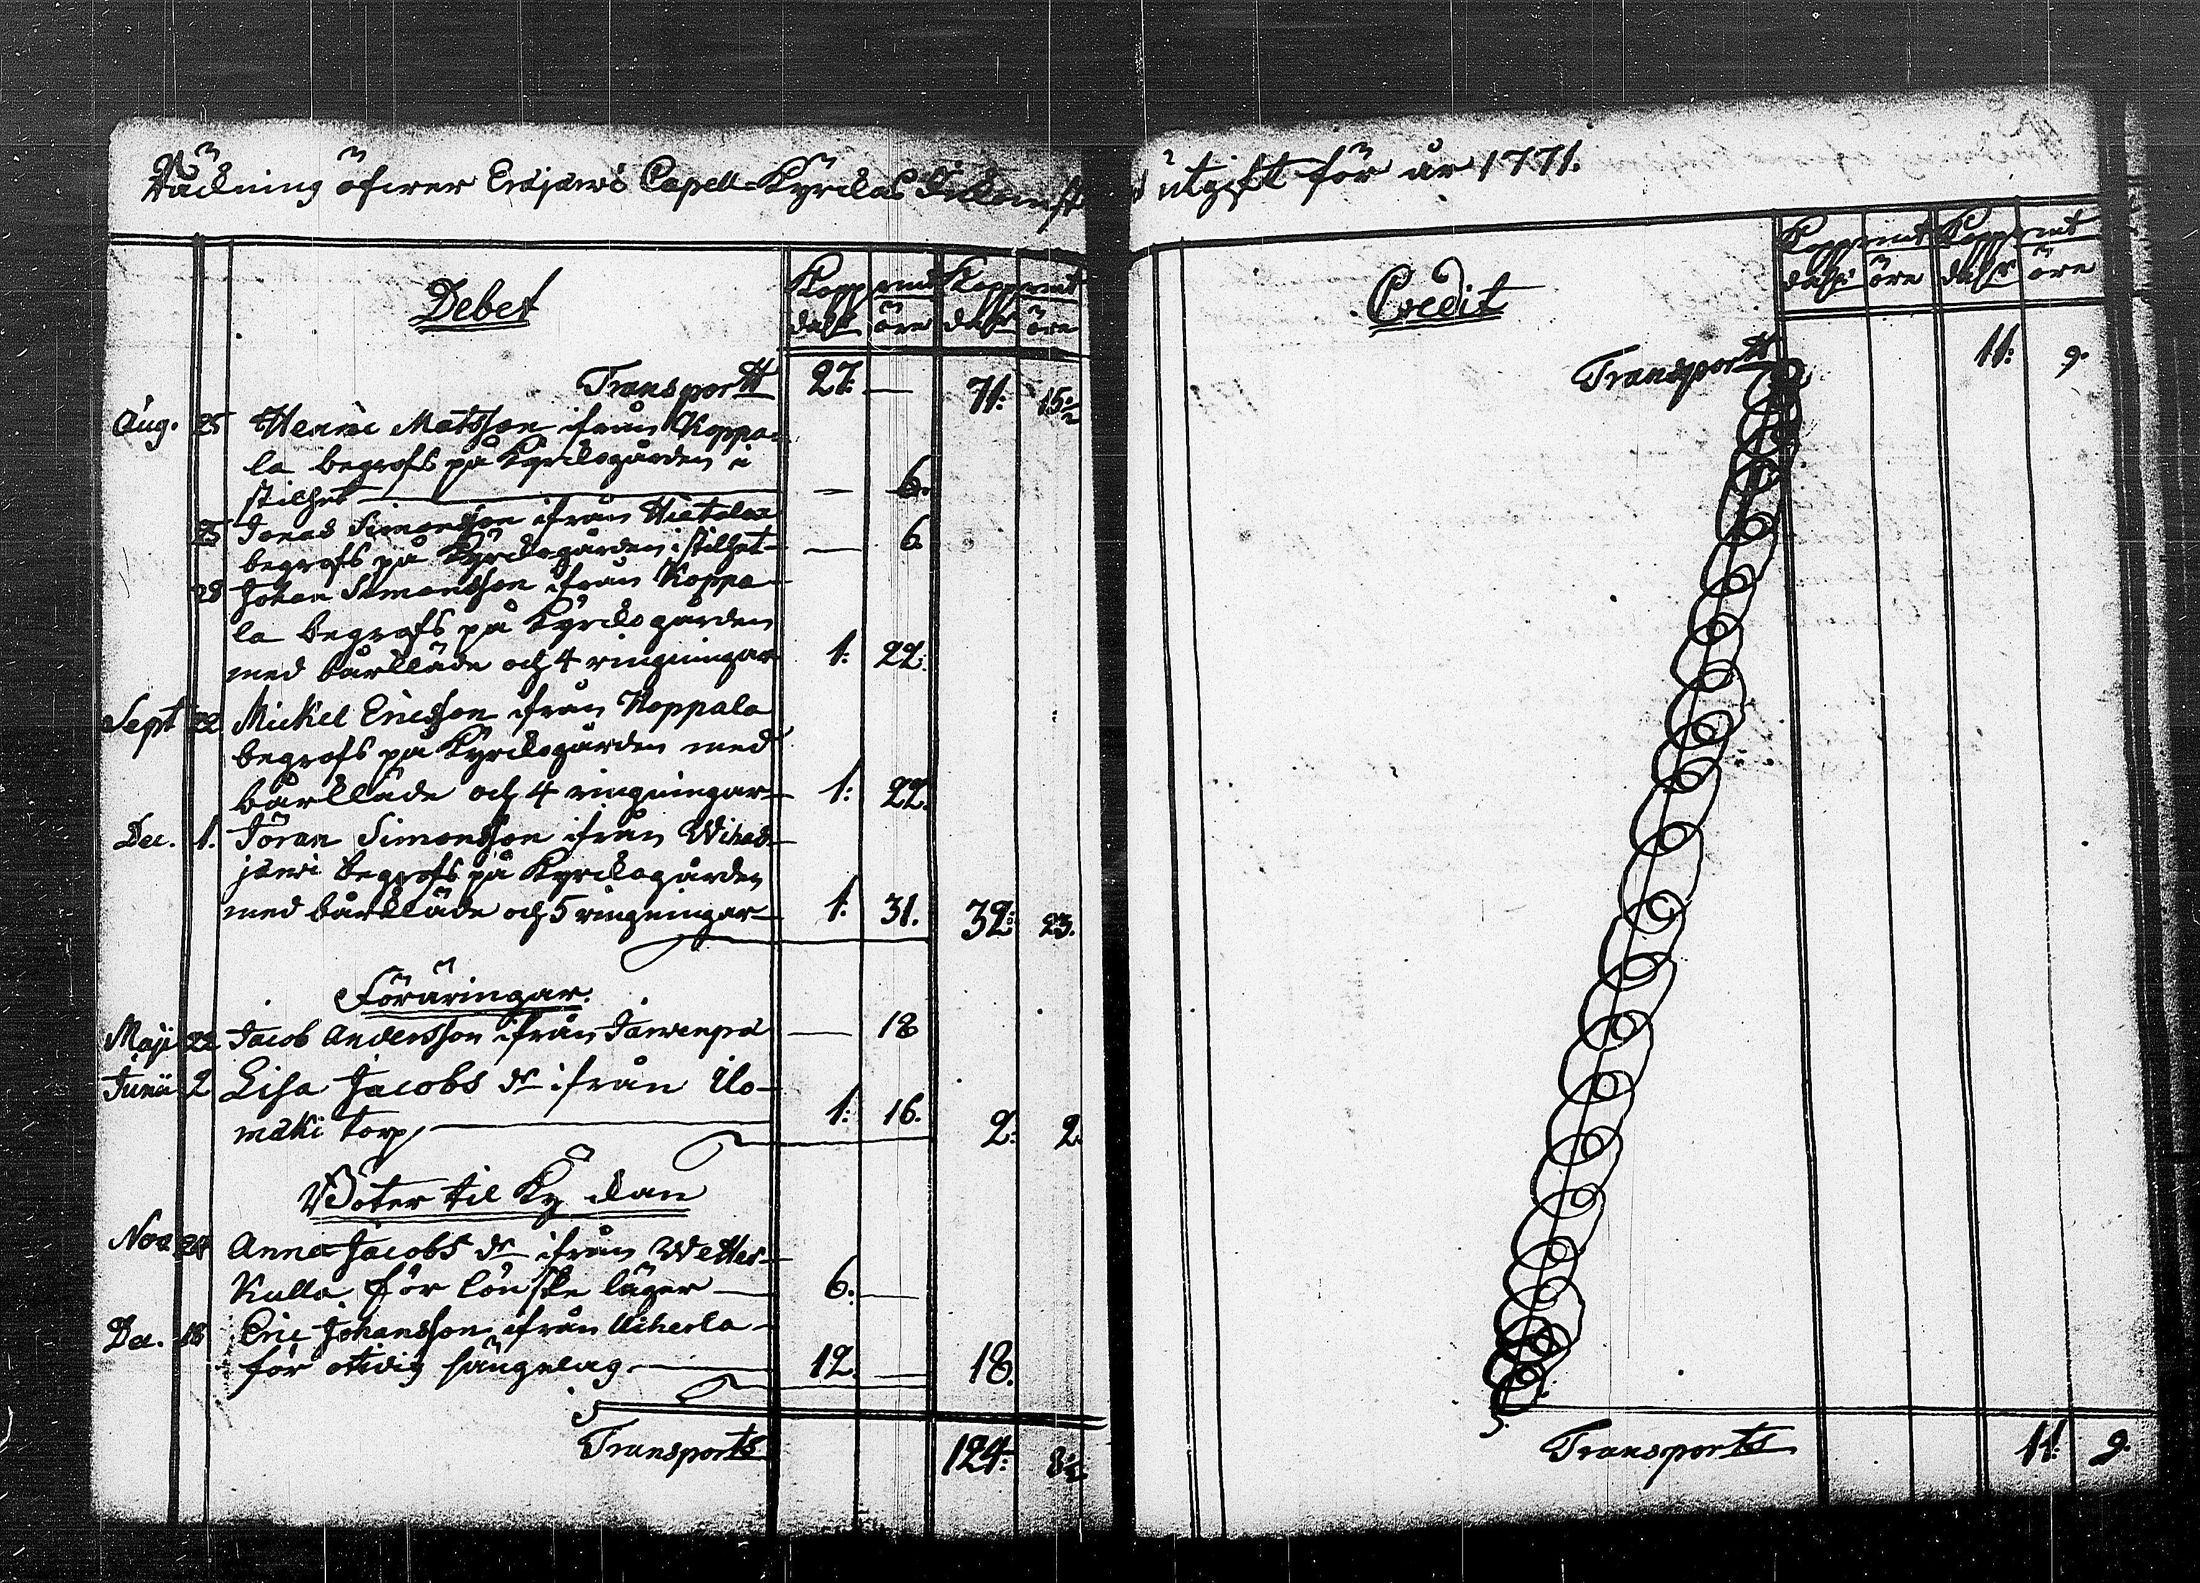 Räckning öfwer Eräjärwi Capell-Kyrckas Inkomst
utgift för år 1771.
Debet
Kopp mt Kopp mt
dahlr öre dahlr öre
Transportt 27: — 71: 15 1/2
Aug. 25 Henric Matsson ifrån Koppa-
la begrofs på Kyrckogården i
stilhet — — 6.
25 Jonas Simonsson ifrån Hietalax
begrofs på Kyrckogården i stilhet — — 6.
28 Johan Simonsson ifrån Koppa-
la begrofs på Kyrckogården
med bårkläde och 4 ringningar 1: 22.
Sept 22 Mickel Ericsson ifrån Koppala
begrofs på Kyrckogården med
bårkläde och 4 ringningar — 1: 22.
Dec. 1. Jöran Simonsson ifrån Wihas-
järwi begrofs på Kyrckogården
med bårkläde och 5 ringningar — 1: 31. 32: 23.
Föräringar.
Maji 22 Jacob Andersson ifrån Jarwenpä — 18
Junii 2 Lisa Jacobs dr ifrån Ulo-
mäki torp, — 1: 16. 2: 2.
Böter til Ky kan
Nov. 24 Anna Jacobs dr ifrån Wetter-
kulla för lönske läger — 6: —
Dec. 18 Eric Johansson ifrån Uiherla
för otidig sängelag. — 12. — 18.
Transports 124: 8 1/2
Credit
Kopp mt Kopp mt
dahlr öre dahlr öre
Transportt 11: 9.
Transports 11: 9.